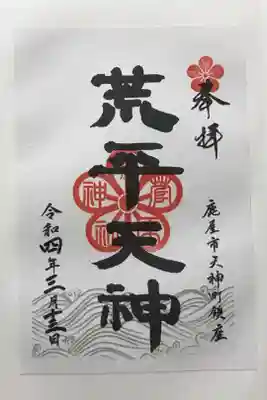 奉拝
鹿屋市天神町鎮座
荒平天神
令和四年三月十三日